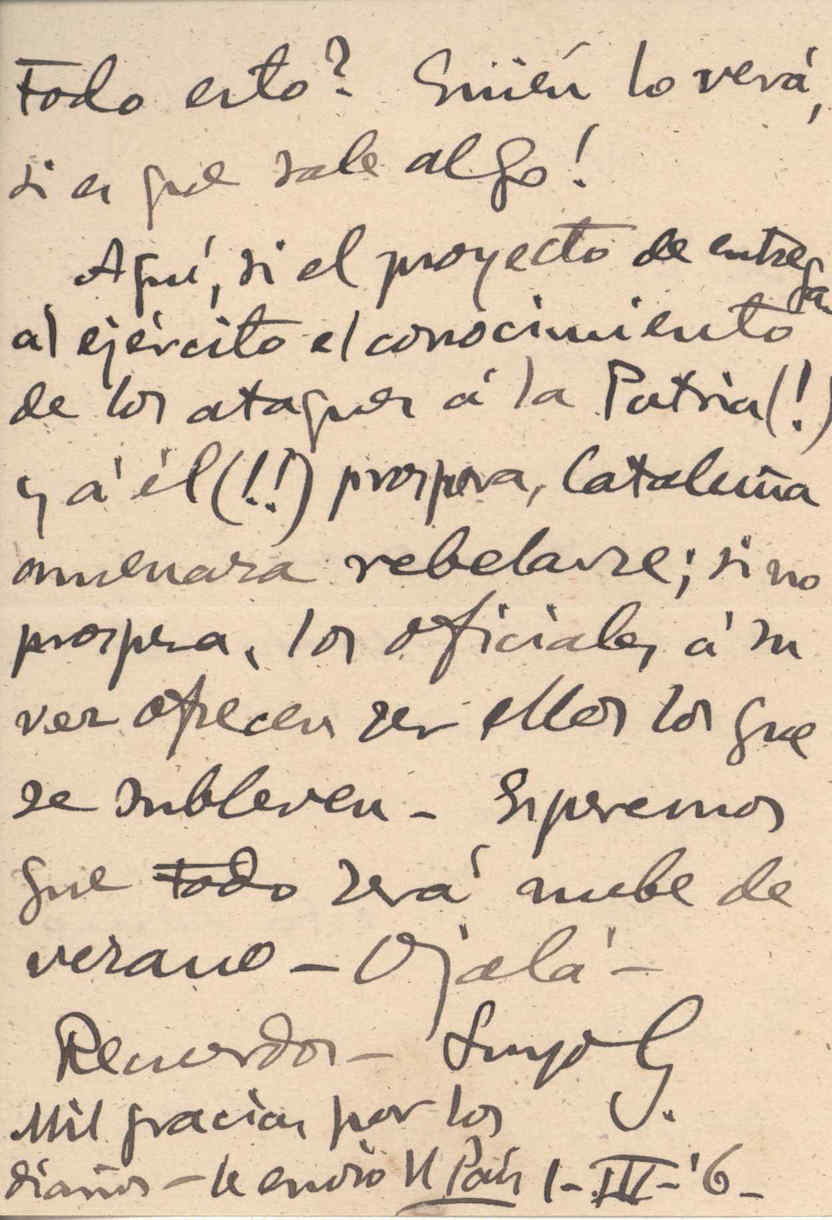 Todo esto? Quién lo verá,
si es que sale algo!
Aquí, si el proyecto de entregar
al ejército el conocimiento
de los ataques á la Patria(!)
y á él(!!) prospera, Cataluña
amenaza rebelarse; si no
prospera, los oficiales á su
vez ofrecen ser ellos los que
se subleven - Esperemos
que todo será nube de
verano - Ojalá -
Recuerdos - Suyo G.
Mil gracias por los
diarios - le envio El País 1-IV-'6-